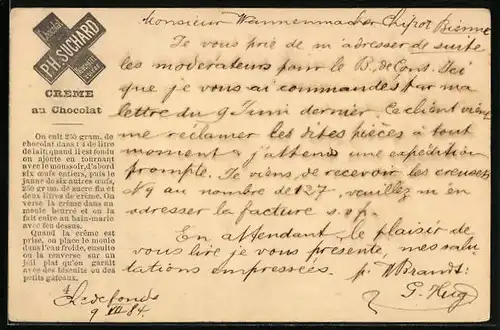 Chocolat
PH. SUCHARD
CREME
au Chocolat
On cuit 250 gram. de
chocolat dans 1 3/4 de litre
de lait, quand il est fondu
on ajoute en tournant
avec le moussoir, d'abord
six œufs entiers, puis le
jaune de six autres œufs,
250 gram. de sucre fin et
deux litres de crême. On
verse la crême dans un
moule beurré et on la
fait cuire au bain-marie
avec feu dessus.
Quand la crême est
prise, on place le moule
dans l'eau froide, ensuite
on la renverse sur un
joli plat qu'on garnit
avec des biscuits ou des
petits gâteaux.
Monsieur Wannenmacher Bienne
Je vous prie de m'adresser de suite
les moderateurs pour le B. de Cons.
que je vous ai commandés par ma
lettre du 9 Juni dernier. Ce client vient
me reclamer les dites pièces à tout
moment & j'attend une expédition
prompte. Je viens de recevoir les creusets
N 9 au nombre de 127, veuillez m'en
adresser la facture s.v.p.
En attendant le plaisir de
vous lire je vous présente, mes salu-
tations empressées. p. W Brandt:
G. Hug
Ch de fonds
9 VII 84.